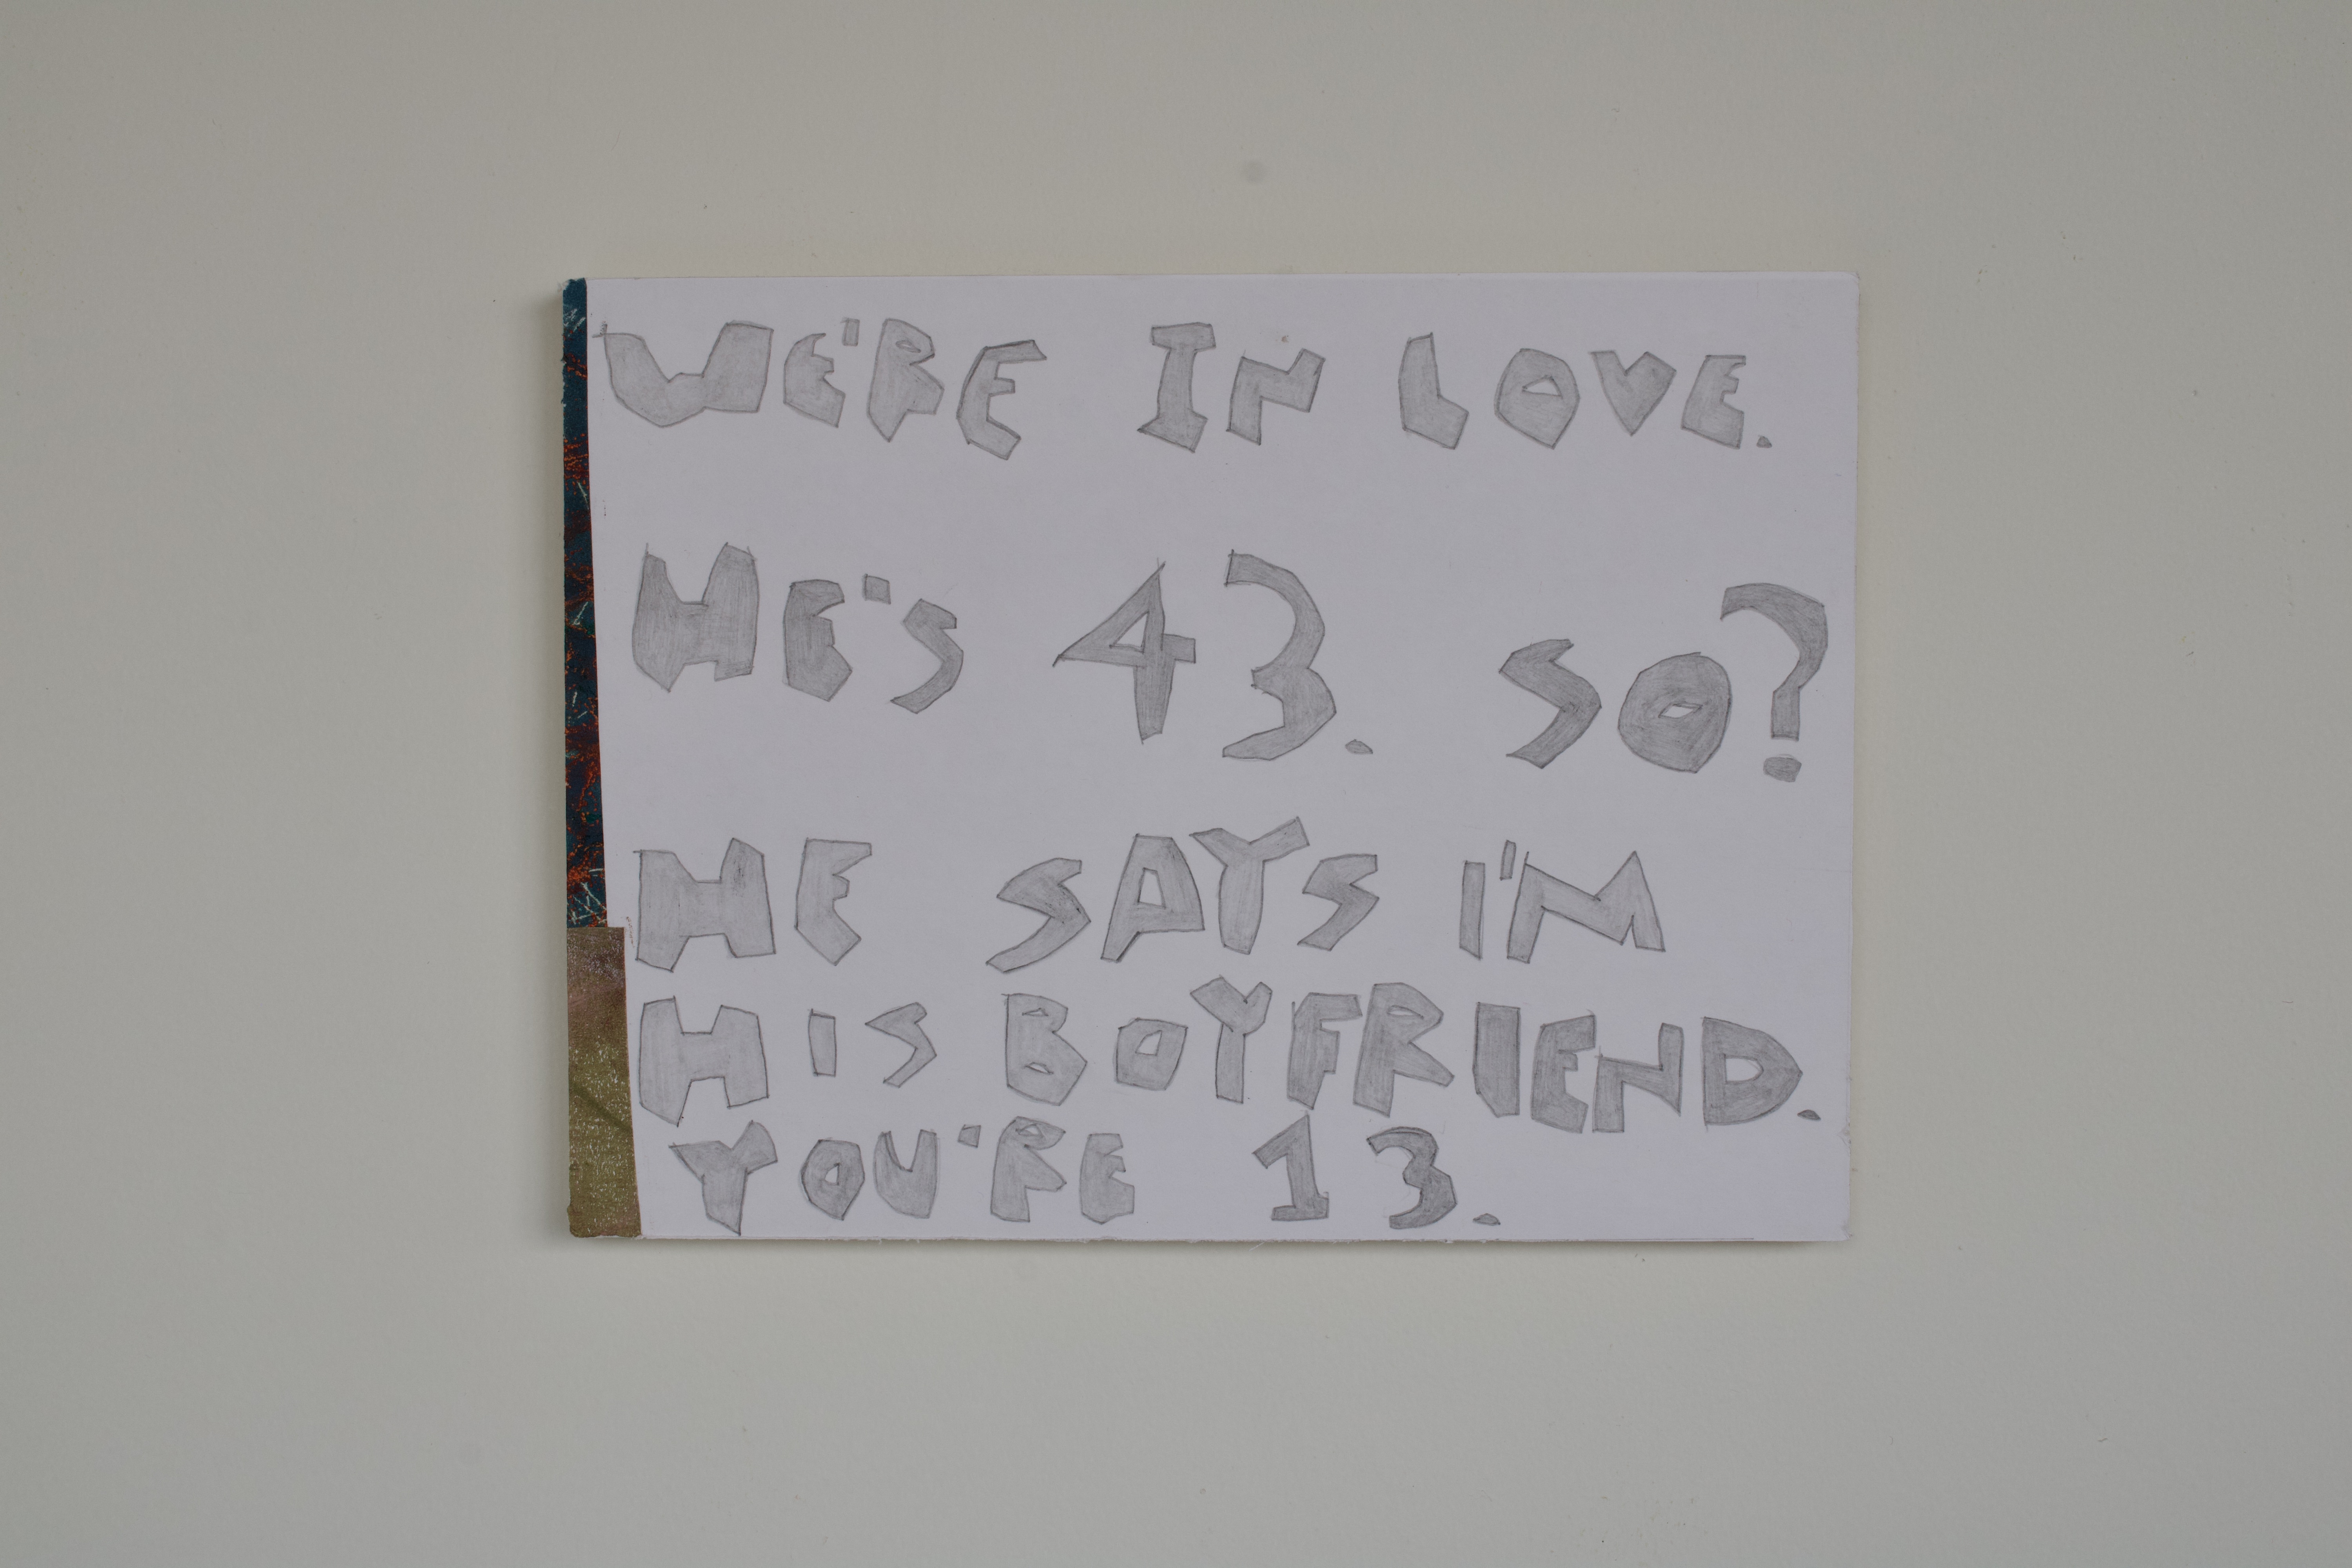 WE'RE IN LOVE.
HE'S 43. SO?
HE SAYS I'M
HIS BOYFRIEND.
YOU'RE 13.